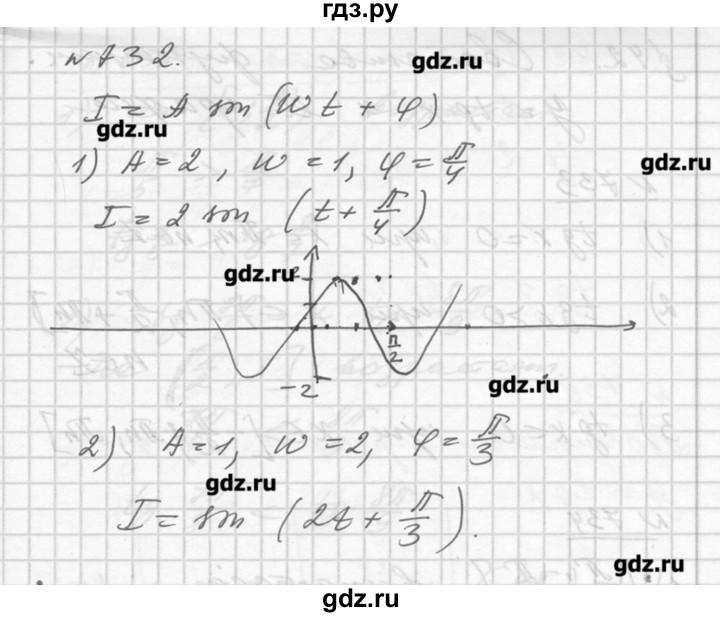 гдз.ру
№ 732.
gdz.ru
I = A sin (wt + φ)
gdz.ru
1) A = 2, w = 1, φ = π/4
gdz.ru
I = 2 sin (t + π/4)
gdz.ru
2
π/2
-2
gdz.ru
2) A = 1, w = 2, φ = π/3
gdz.ru
I = sin (2t + π/3).
gdz.ru
gdz.ru